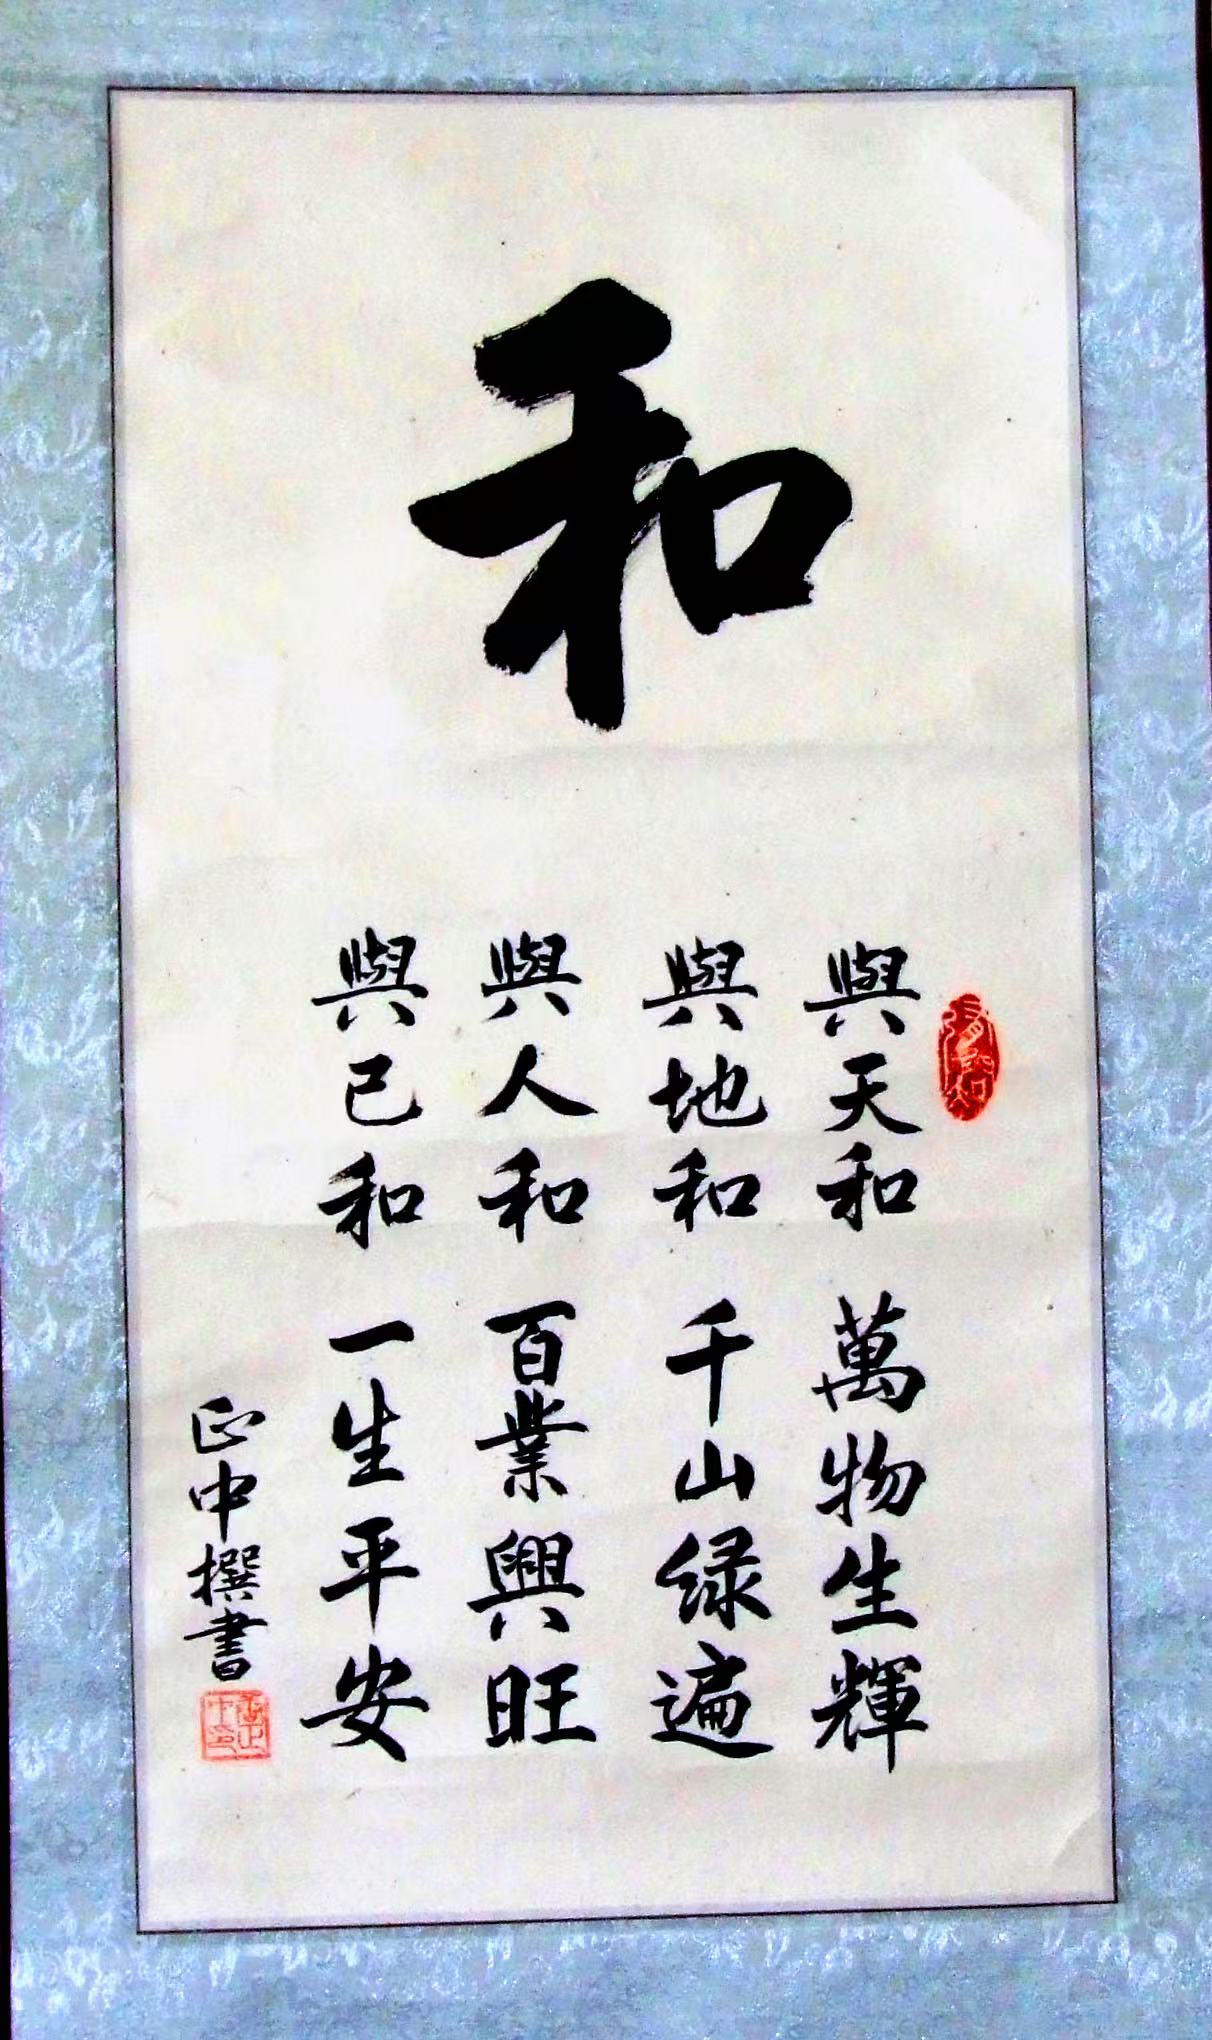 和
與天和 萬物生輝
與地和 千山绿遍
與人和 百業興旺
與己和 一生平安
正中撰書